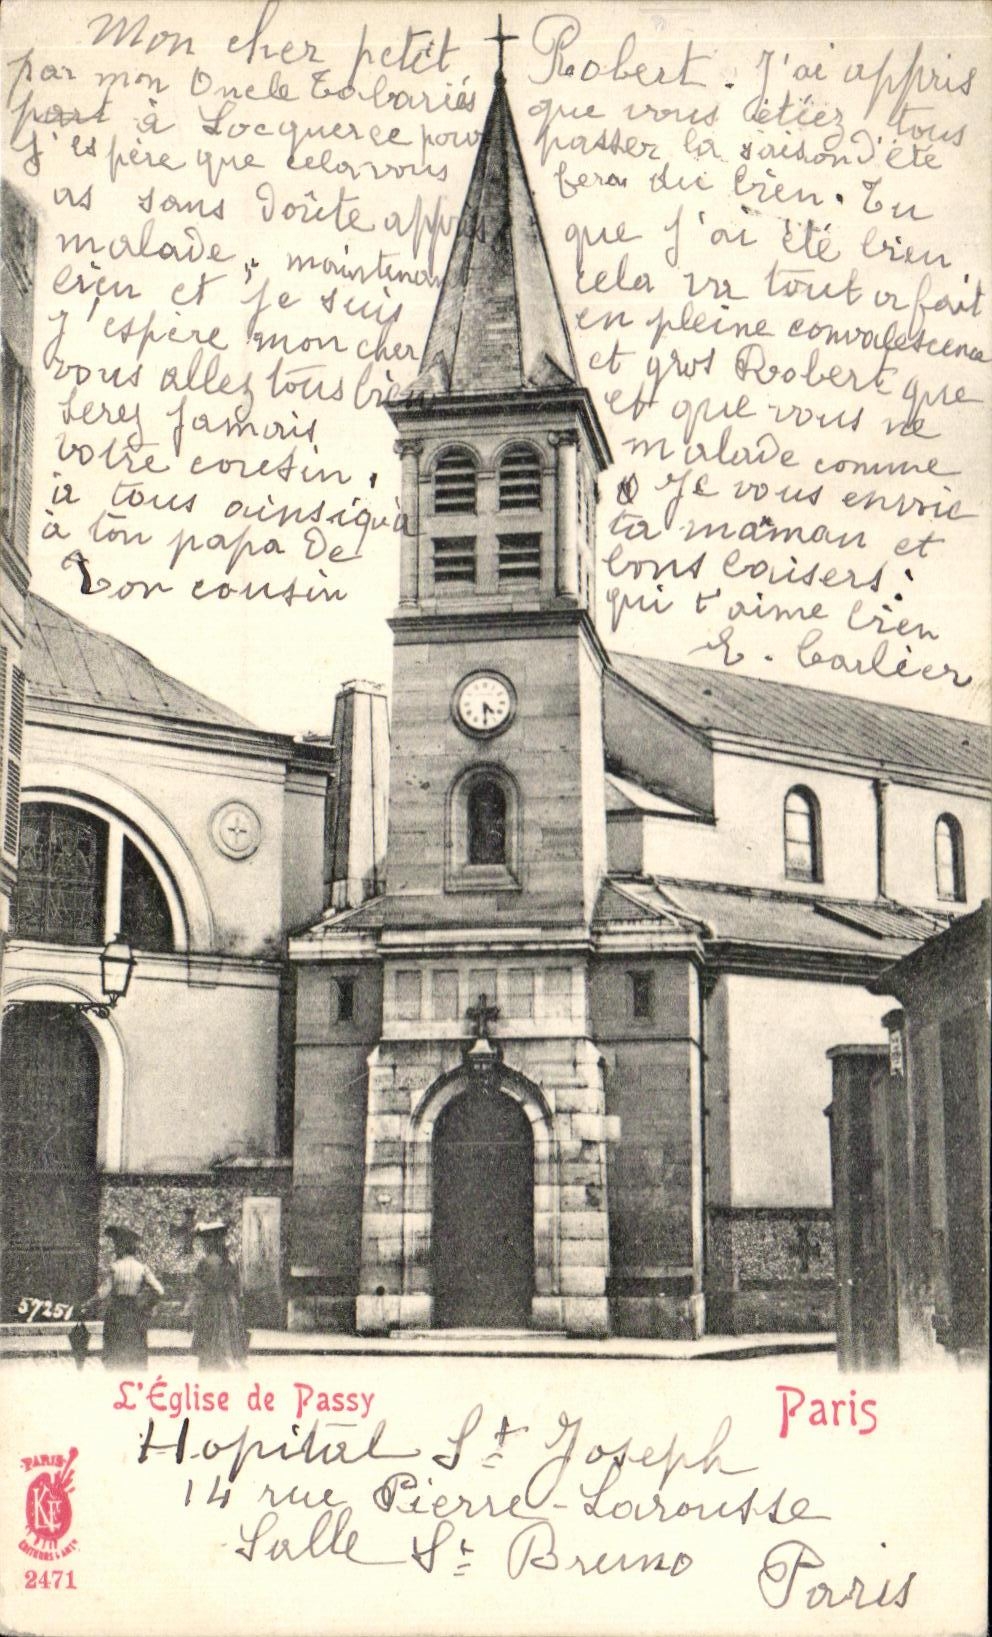 Mon cher petit Robert. J'ai appris
par mon Oncle Tabariés que vous étiez tous
part à Locquerec pour passer la saison d'été
J'espère que cela vous fera du bien. Tu
as sans doûte appris que j'ai été bien
malade, maintenant cela va tout a fait
bien et je suis en pleine convalescence
J'espère mon cher et gros Robert que
vous allez tous bien et que vous ne
serez jamais malade comme
votre cousin. Je vous envoie
à tous ainsi qu'à ta maman et
à ton papa de bons baisers.
Ton cousin qui t'aime bien
E. Carlier
57251
L'Église de Passy
Paris
Hopital St Joseph
14 rue Pierre-Larousse
Salle St Bruno
Paris
PARIS
KF
EDITEURS D'ART
2471